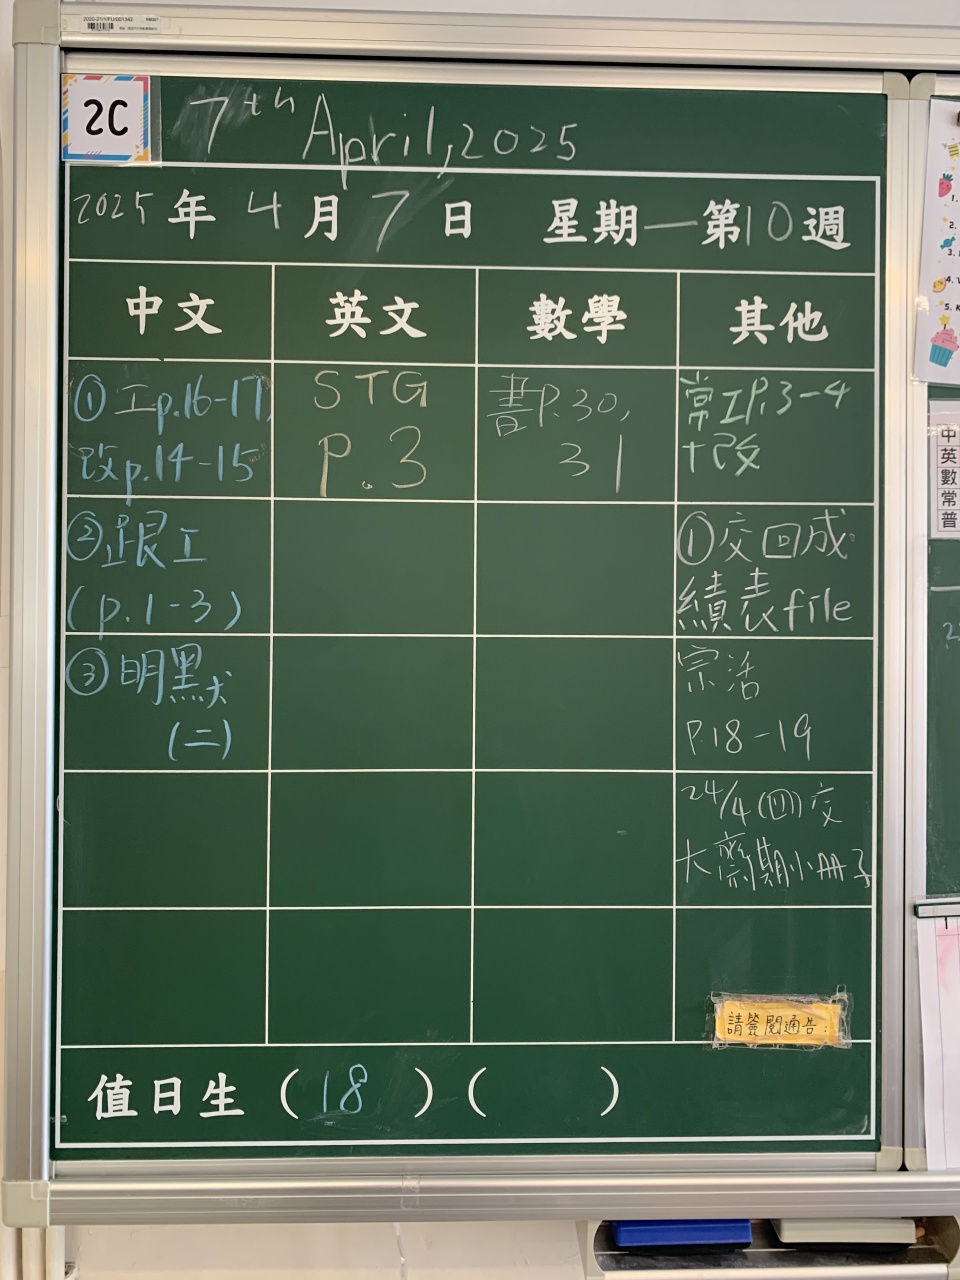 2C
7th April, 2025
2025年4月7日 星期一第10週
中文 英文 數學 其他
①工p.16-17,
改p.14-15
STG
P.3
書P.30,
31
常工P.3-4
+改
②跟工
(p.1-3)
①交回成
績表file
③明默
(二)
宗活
P.18-19
24/4(四)交
大齋期小冊子
請簽閱通告:
值日生(18)( )
1.
2.
3.
4.
5.
中
英
數
常
普
1